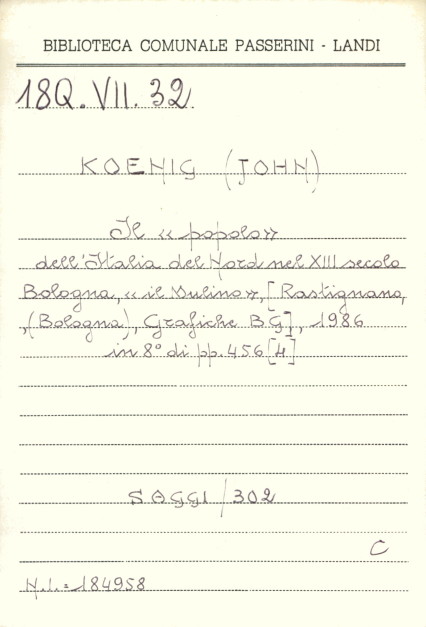 BIBLIOTECA COMUNALE PASSERINI - LANDI
18Q.VII.32
KOENIG (JOHN)
Il «popolo»
dell'Italia del Nord nel XIII secolo
Bologna, «il Mulino», [Rastignano,
(Bologna), Grafiche BG], 1986
in 8° di pp. 456 [4]
SAGGI/302
C
N.i. = 184958